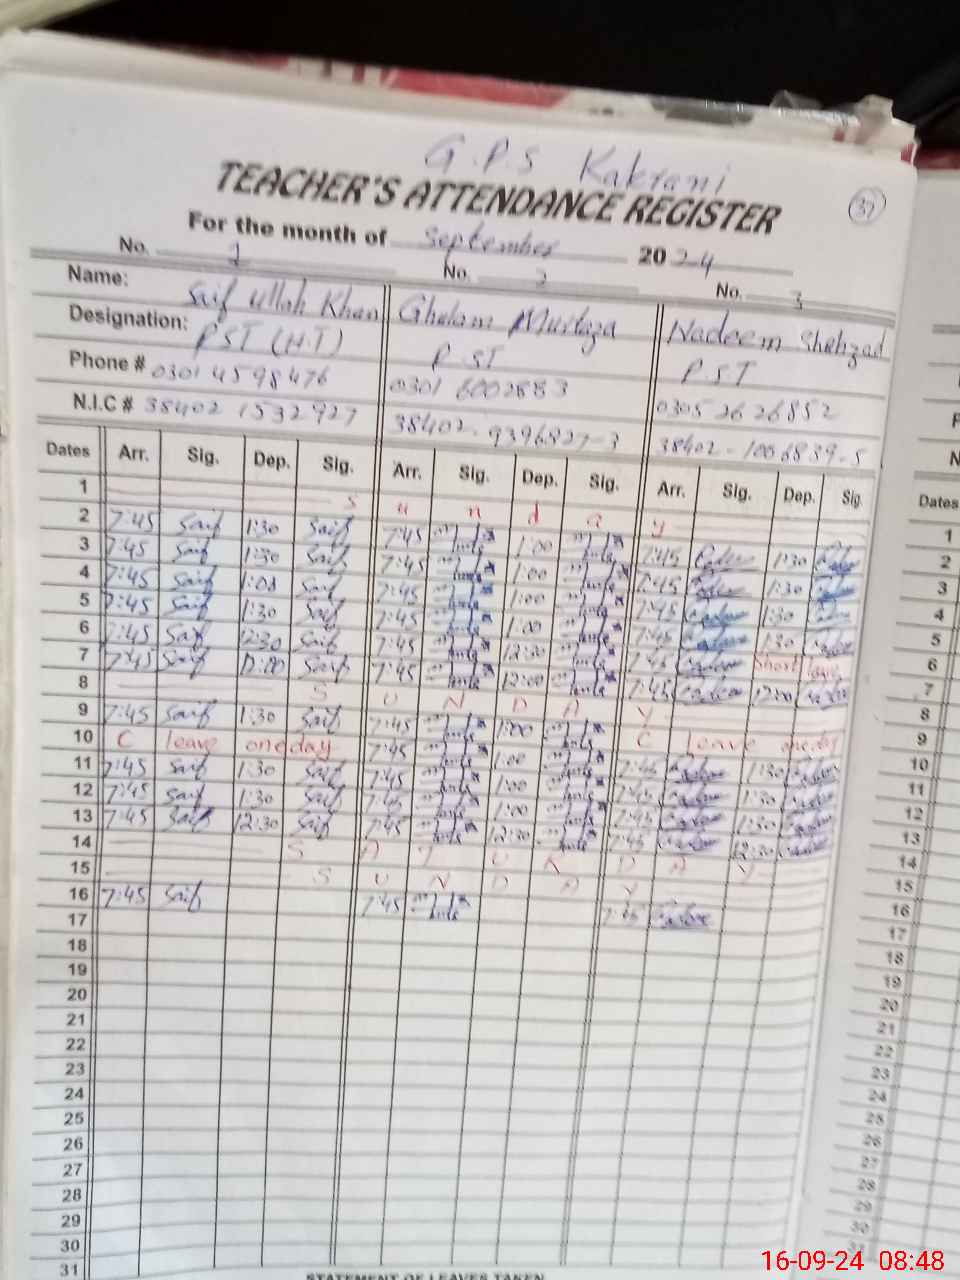 G.P.S Kakrani
TEACHER'S ATTENDANCE REGISTER
37
For the month of September 2024
No. 1 No. 2 No. 3
Name: Saif Ullah Khan Ghulam Murtaza Nadeem Shehzad
Designation: PST (H.T) P.ST P.S.T
Phone # 0301 4598476 0301 6002883 0305 2626852
N.I.C # 38402 1532927 38402-9396827-3 38402-1006839-5
Dates Arr. Sig. Dep. Sig. Arr. Sig. Dep. Sig. Arr. Sig. Dep. Sig. Dates
1 S u n d a y 1
2 7:45 Saif 1:30 Saif 7:45 1:00 7:45 1:30 2
3 7:45 Saif 1:30 Saif 7:45 1:00 7:45 1:30 3
4 7:45 Saif 1:00 Saif 7:45 1:00 7:45 1:30 4
5 7:45 Saif 1:30 Saif 7:45 1:00 7:45 1:30 5
6 7:45 Saif 12:30 Saif 7:45 12:30 7:45 Short leave 6
7 7:45 Saif 12:00 Saif 7:45 12:00 7:45 12:00 7
8 S U N D A Y 8
9 7:45 Saif 1:30 Saif 7:45 1:00 C leave oneday 9
10 C leave oneday 7:45 1:00 7:45 1:30 10
11 7:45 Saif 1:30 Saif 7:45 1:00 7:45 1:30 11
12 7:45 Saif 1:30 Saif 7:45 1:00 7:45 1:30 12
13 7:45 Saif 12:30 Saif 7:45 12:30 7:45 12:30 13
14 S A T U R D A Y 14
15 S U N D A Y 15
16 7:45 Saif 7:45 7:45 16
17 17
18 18
19 19
20 20
21 21
22 22
23 23
24 24
25 25
26 26
27 27
28 28
29 29
30 30
31
STATEMENT OF LEAVES TAKEN
16-09-24 08:48